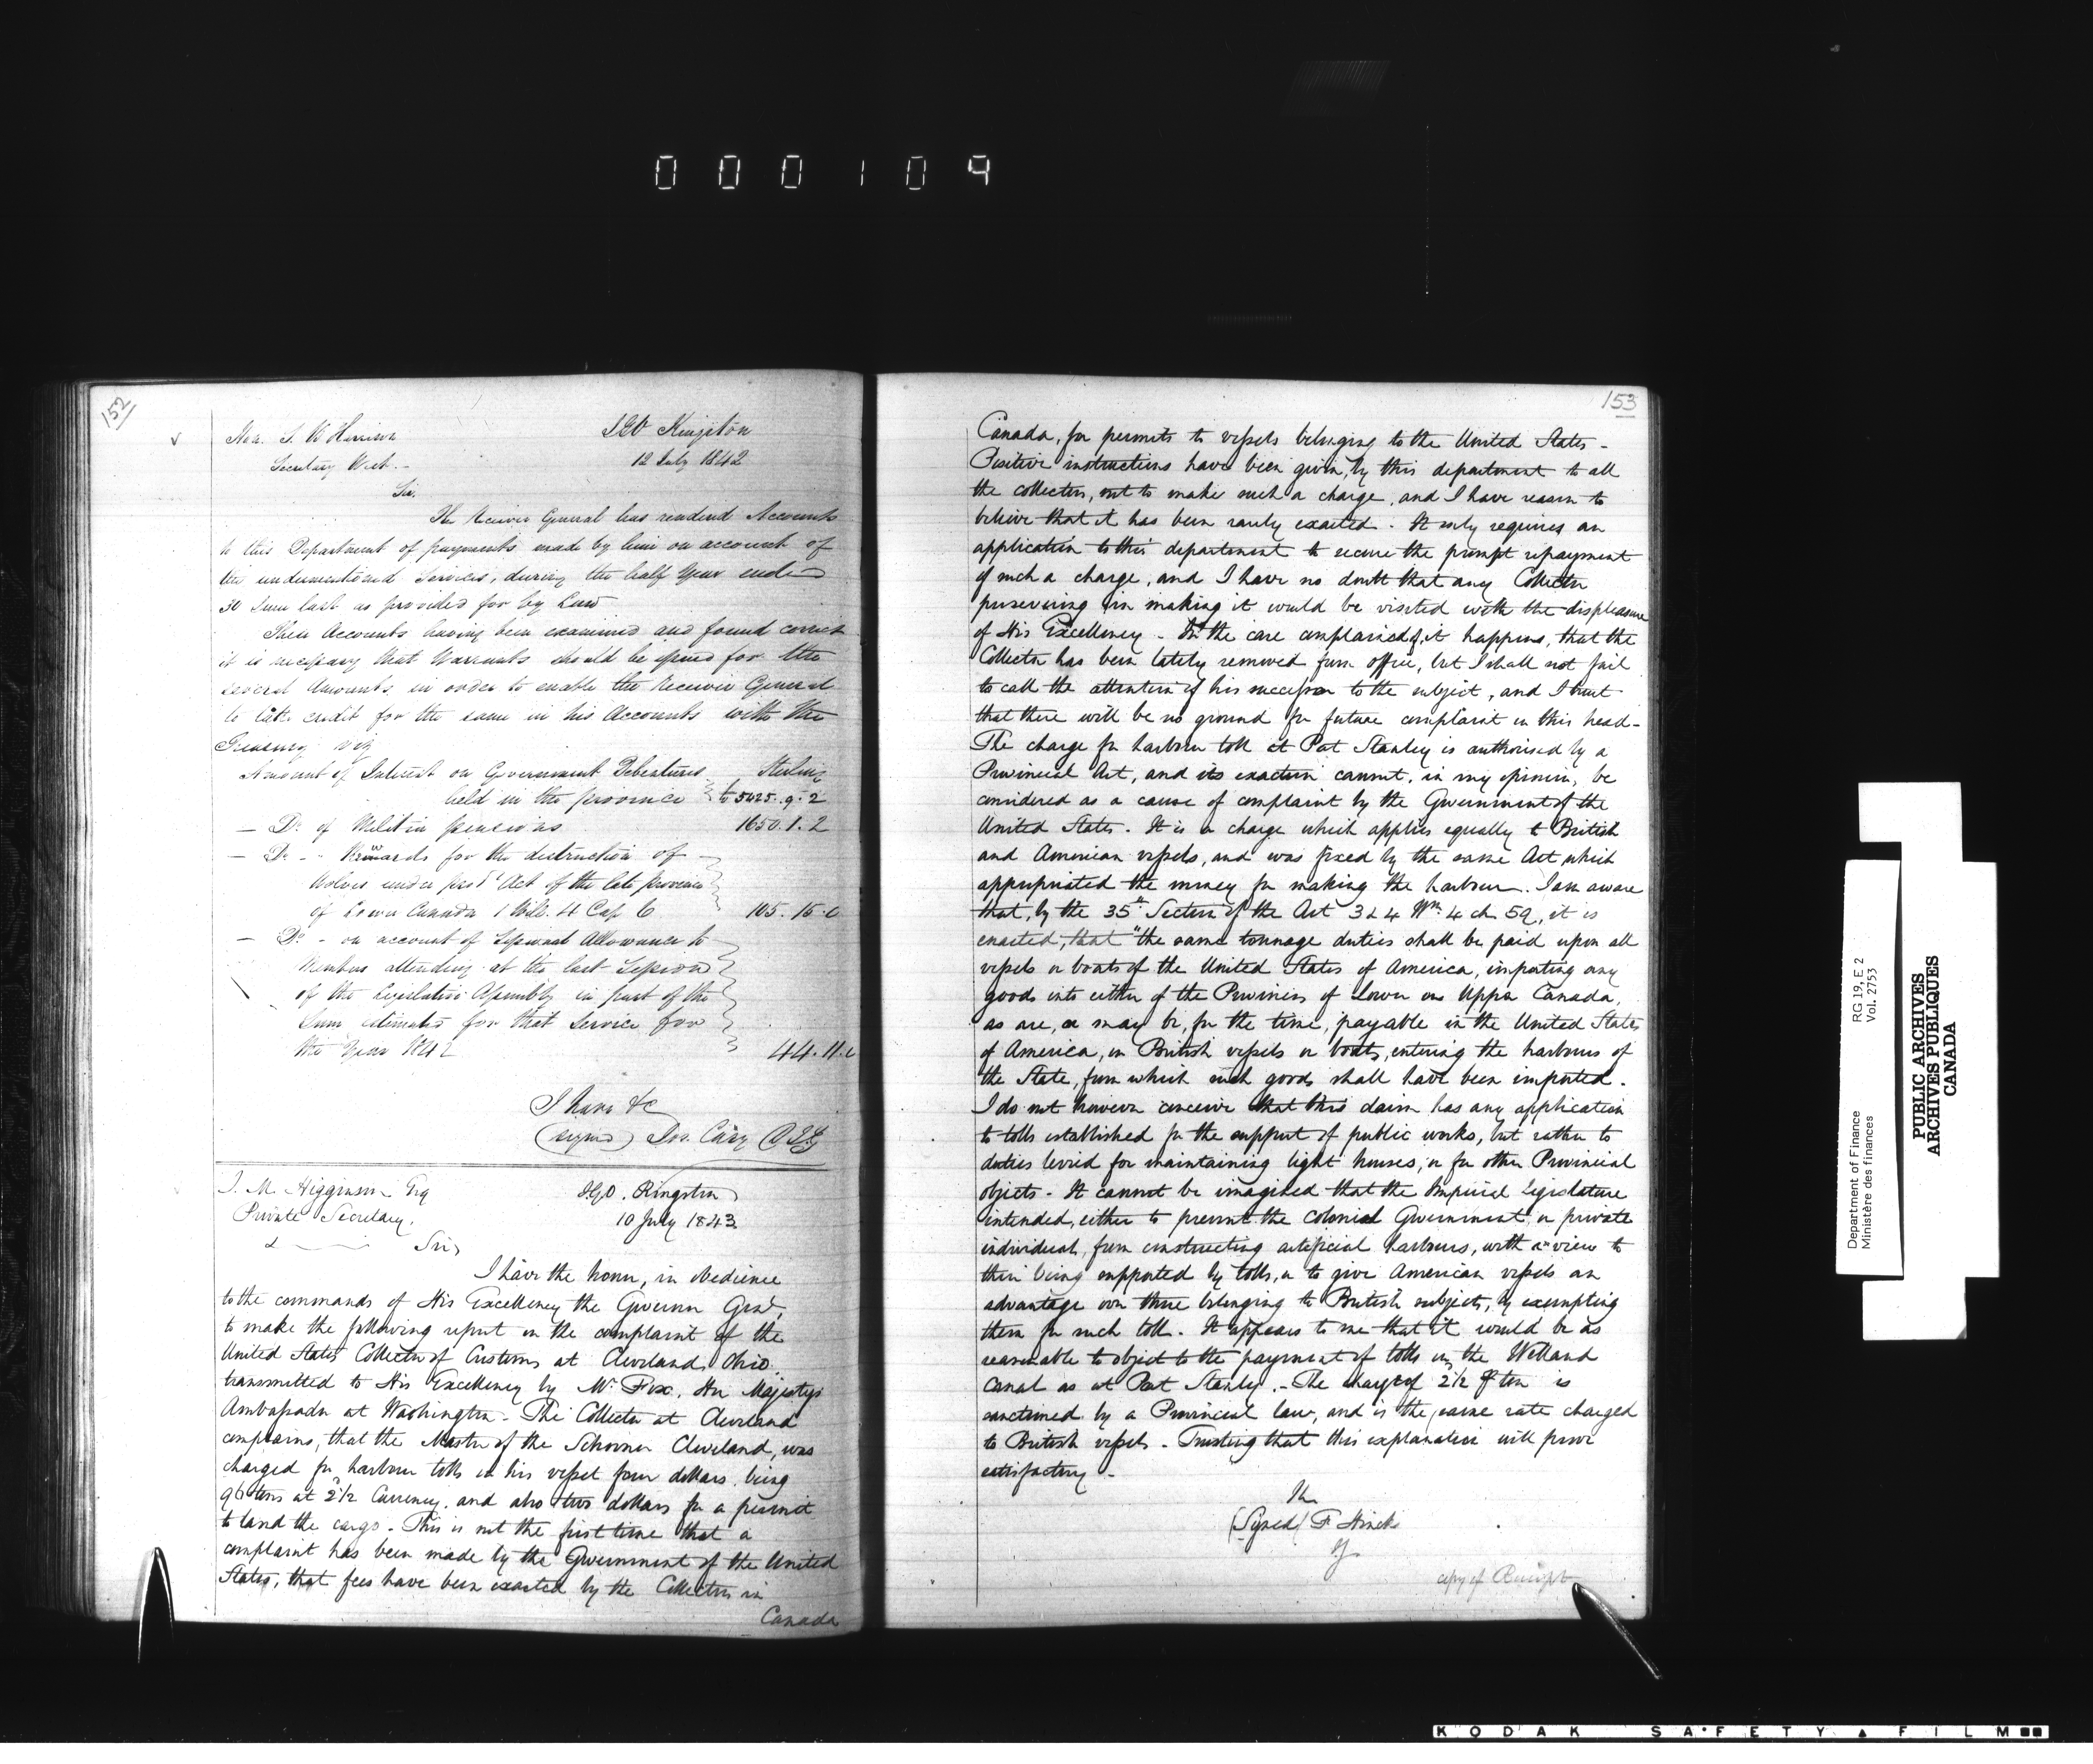 000109
152
Hon. S. B Harrison
Secretary West.
IGO Kingston
12 July 1842
Sir,
The Receiver General has rendered Accounts
to this Department of payments made by him on account of
the undermentioned Services, during the half Year ended
30 June last as provided for by Law
These Accounts having been examined and found correct
it is necessary that Warrants should be issued for the
several Amounts, in order to enable the Receiver General
to take credit for the same in his Accounts with the
Treasury viz
Amount of Interest on Government Debentures Sterling
held in the province £5425. 9. 2
— Do of Militia pensions 1650. 1. 2
— Do - Rewards for the destruction of
Wolves under Act of the late province
of Lower Canada 1 Will. 4 Cap 6 105. 15. 0
— Do - on account of Sessional Allowance to
Members attending at the last Session
of the Legislative Assembly in part of the
Sum estimated for that Service for
the Year 1842 44. 11.
I have &c
(signed) Jos. Cary DIG
J. M. Higginson Esq
Private Secretary.
IGO. Kingston
10 July 1843
Sir,
I have the honor, in obedience
to the commands of His Excellency the Governor Genl,
to make the following report on the complaint of the
United States Collector of Customs at Cleveland, Ohio
transmitted to His Excellency by Mr Fox, Her Majesty's
Ambassador at Washington - The Collector at Cleveland
complains, that the Master of the Schooner Cleveland, was
charged for harbour tolls on his vessel four dollars, being
96 tons at 2½ Currency, and also two dollars for a permit
to land the cargo - This is not the first time that a
complaint has been made by the Government of the United
States, that fees have been exacted by the Collectors in
Canada
153
Canada, for permits to vessels belonging to the United States -
Positive instructions have been given, by this department to all
the collectors, not to make such a charge, and I have reason to
believe that it has been rarely exacted. It only requires an
application to this department to secure the prompt repayment
of such a charge, and I have no doubt that any Collector
persevering in making it would be visited with the displeasure
of His Excellency - In the case complained of, it happens, that the
Collector has been lately removed from office, but I shall not fail
to call the attention of his successor to the subject, and I trust
that there will be no ground for future complaint on this head -
The charge for harbour toll at Port Stanley is authorised by a
Provincial Act, and its exaction cannot, in my opinion, be
considered as a cause of complaint by the Government of the
United States. It is a charge which applies equally to British
and American vessels, and was fixed by the same Act which
appropriated the money for making the harbour. I am aware
that, by the 35th Section of the Act 3 & 4 Wm 4 ch 59, it is
enacted, that "the same tonnage duties shall be paid upon all
vessels or boats of the United States of America, importing any
goods into either of the Provinces of Lower or Upper Canada,
as are, or may be, for the time, payable in the United States
of America, on British vessels or boats, entering the harbours of
the State, from which such goods shall have been imported.
I do not however conceive that this claim has any application
to tolls established for the support of public works, but rather to
duties levied for maintaining light houses, or for other Provincial
objects - It cannot be imagined that the Imperial Legislature
intended, either to prevent the Colonial Government, or private
individuals, from constructing artificial harbours, with a view to
their being supported by tolls, or to give American vessels an
advantage over those belonging to British subjects, by exempting
them for such toll. It appears to me that it would be as
reasonable to object to the payment of tolls on the Welland
Canal as at Port Stanley. - The charge of 2½ P ton is
sanctioned by a Provincial law, and is the same rate charged
to British vessels - Trusting that this explanation will prove
satisfactory -
(Signed) F Hincks
IG
copy of Receipt
Department of Finance
Ministère des finances
RG 19, E 2
Vol. 2753
PUBLIC ARCHIVES
ARCHIVES PUBLIQUES
CANADA
KODAK SAFETY FILM